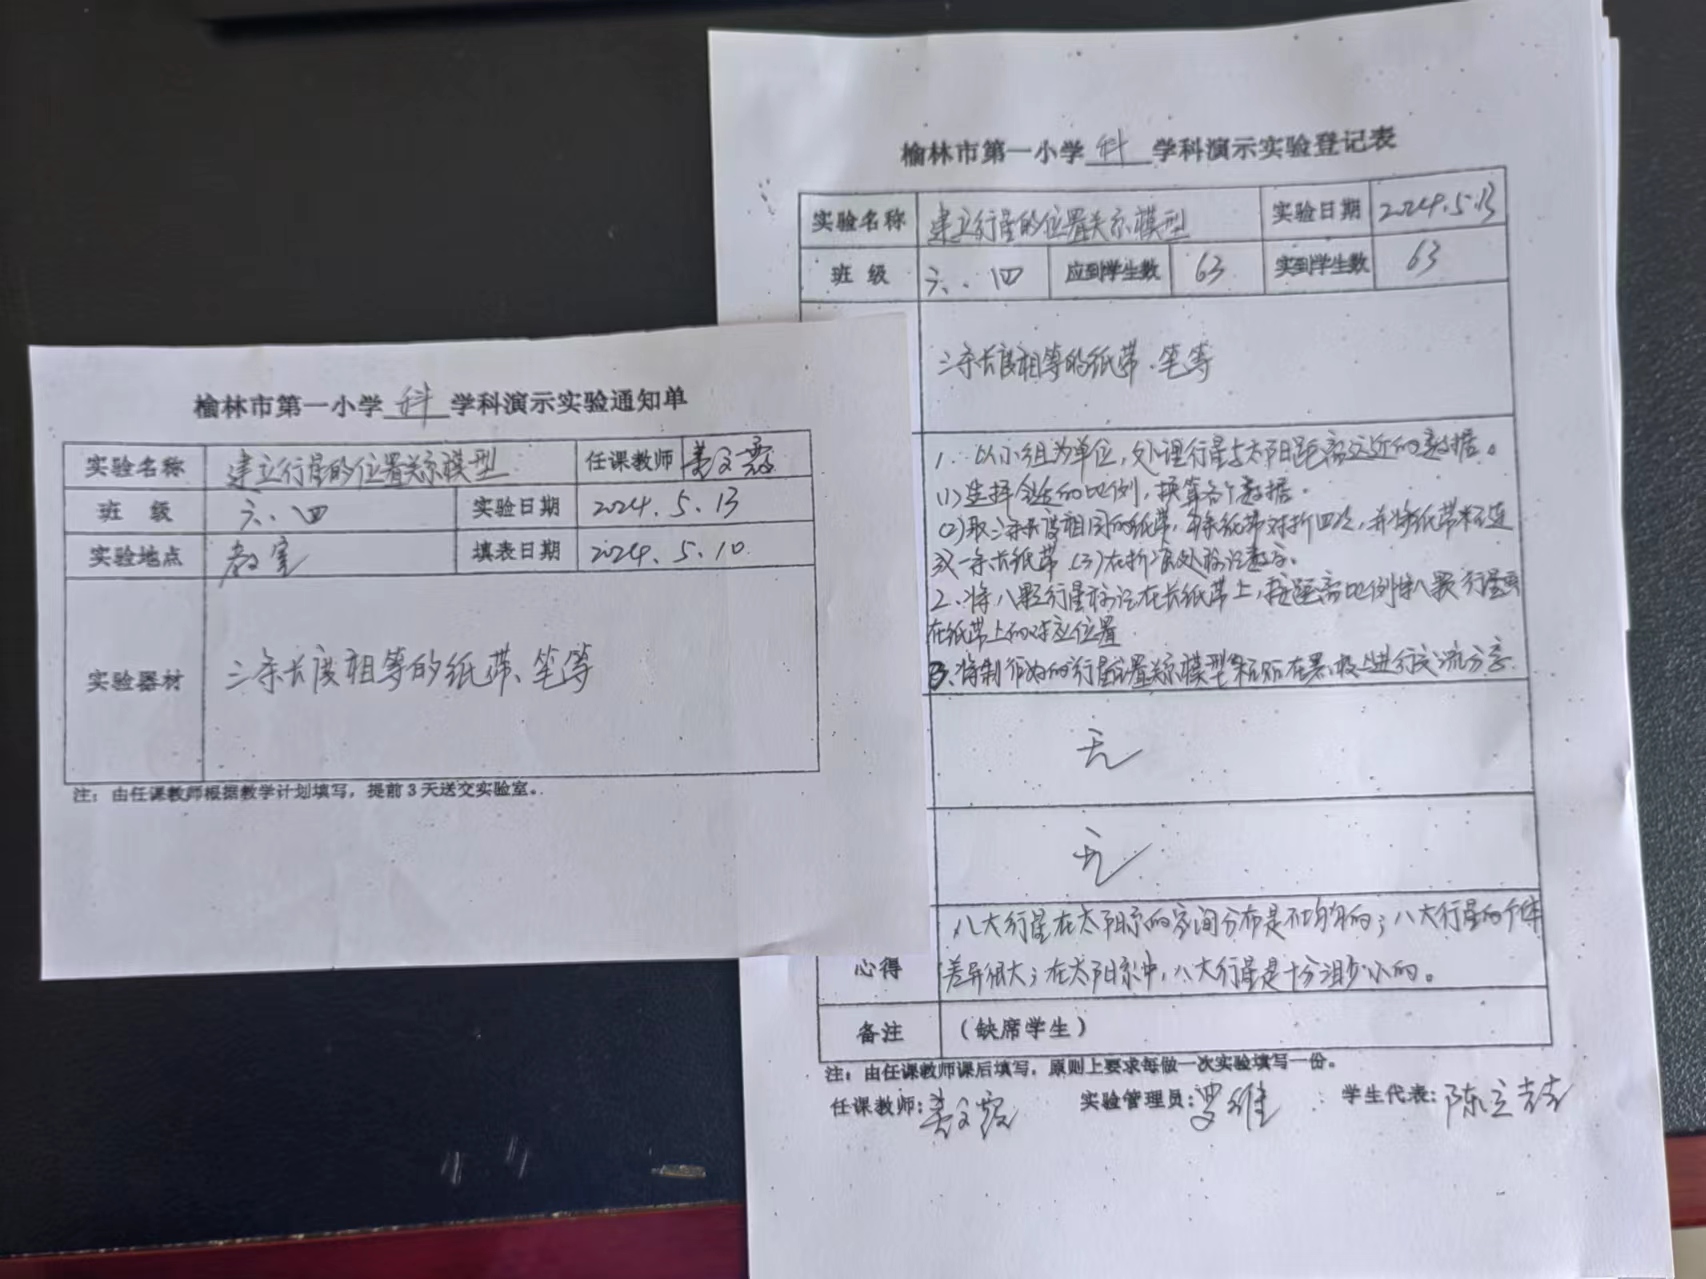 榆林市第一小学 科 学科演示实验通知单
实验名称 建立行星的位置关系模型 任课教师 姜文霞
班 级 六.四 实验日期 2024.5.13
实验地点 教室 填表日期 2024.5.10
实验器材 三条长度相等的纸带、笔等
注：由任课教师根据教学计划填写，提前3天送交实验室。
榆林市第一小学 科 学科演示实验登记表
实验名称 建立行星的位置关系模型 实验日期 2024.5.13
班 级 六.四 应到学生数 63 实到学生数 63
三条长度相等的纸带、笔等
1. 以小组为单位，处理行星与太阳距离远近的数据。
(1)选择合适的比例，换算各个数据。
(2)取三条长度相同的纸带，每条纸带对折四次，并将纸带粘连
成一条长纸带 (3)在折痕处标记数字。
2、将八颗行星标记在长纸带上，按距离比例将八颗行星画
在纸带上的对应位置
3、将制作好的行星位置关系模型粘贴在黑板上进行交流分享.
无
无
八大行星在太阳系的空间分布是不均匀的；八大行星的个体
心得 差异很大；在太阳系中，八大行星是十分渺小的。
备注 （缺席学生）
注：由任课教师课后填写，原则上要求每做一次实验填写一份。
任课教师：姜文霞 实验管理员：罗维 学生代表：陈立